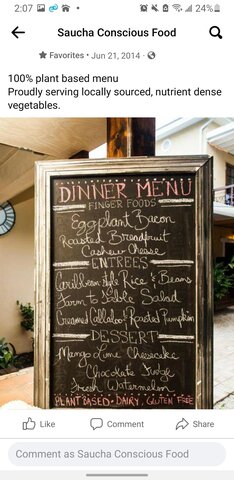 2:07
24%
Saucha Conscious Food
Favorites • Jun 21, 2014 •
100% plant based menu
Proudly serving locally sourced, nutrient dense
vegetables.
DINNER MENU
FINGER FOODS
Eggplant Bacon
Roasted Breadfruit
Cashew Cheese
ENTREES
Caribbean style Rice & Beans
Farm to Table Salad
Creamed Callaloo & Roasted Pumpkin
DESSERT
Mango Lime Cheesecake
Chocolate Fudge
Fresh Watermelon
PLANT BASED • DAIRY, GLUTEN FREE
Like Comment Share
Comment as Saucha Conscious Food